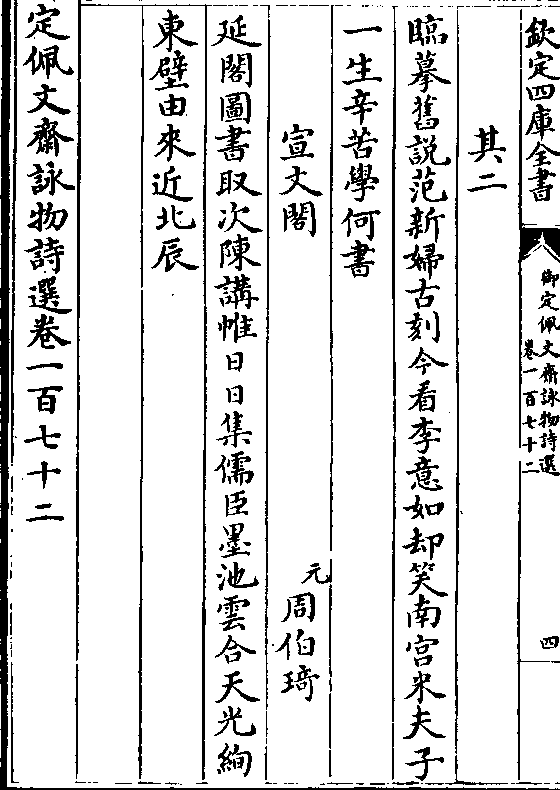 欽定四庫全書
御定佩文齋詠物詩選
卷一百七十二
四
其二
臨摹舊說范新婦古刻今看李意如却笑南宮米夫子
一生辛苦學何書
宣文閣
元周伯琦
延閣圖書取次陳講帷日日集儒臣墨池雲合天光絢
東壁由來近北辰
定佩文齋詠物詩選卷一百七十二